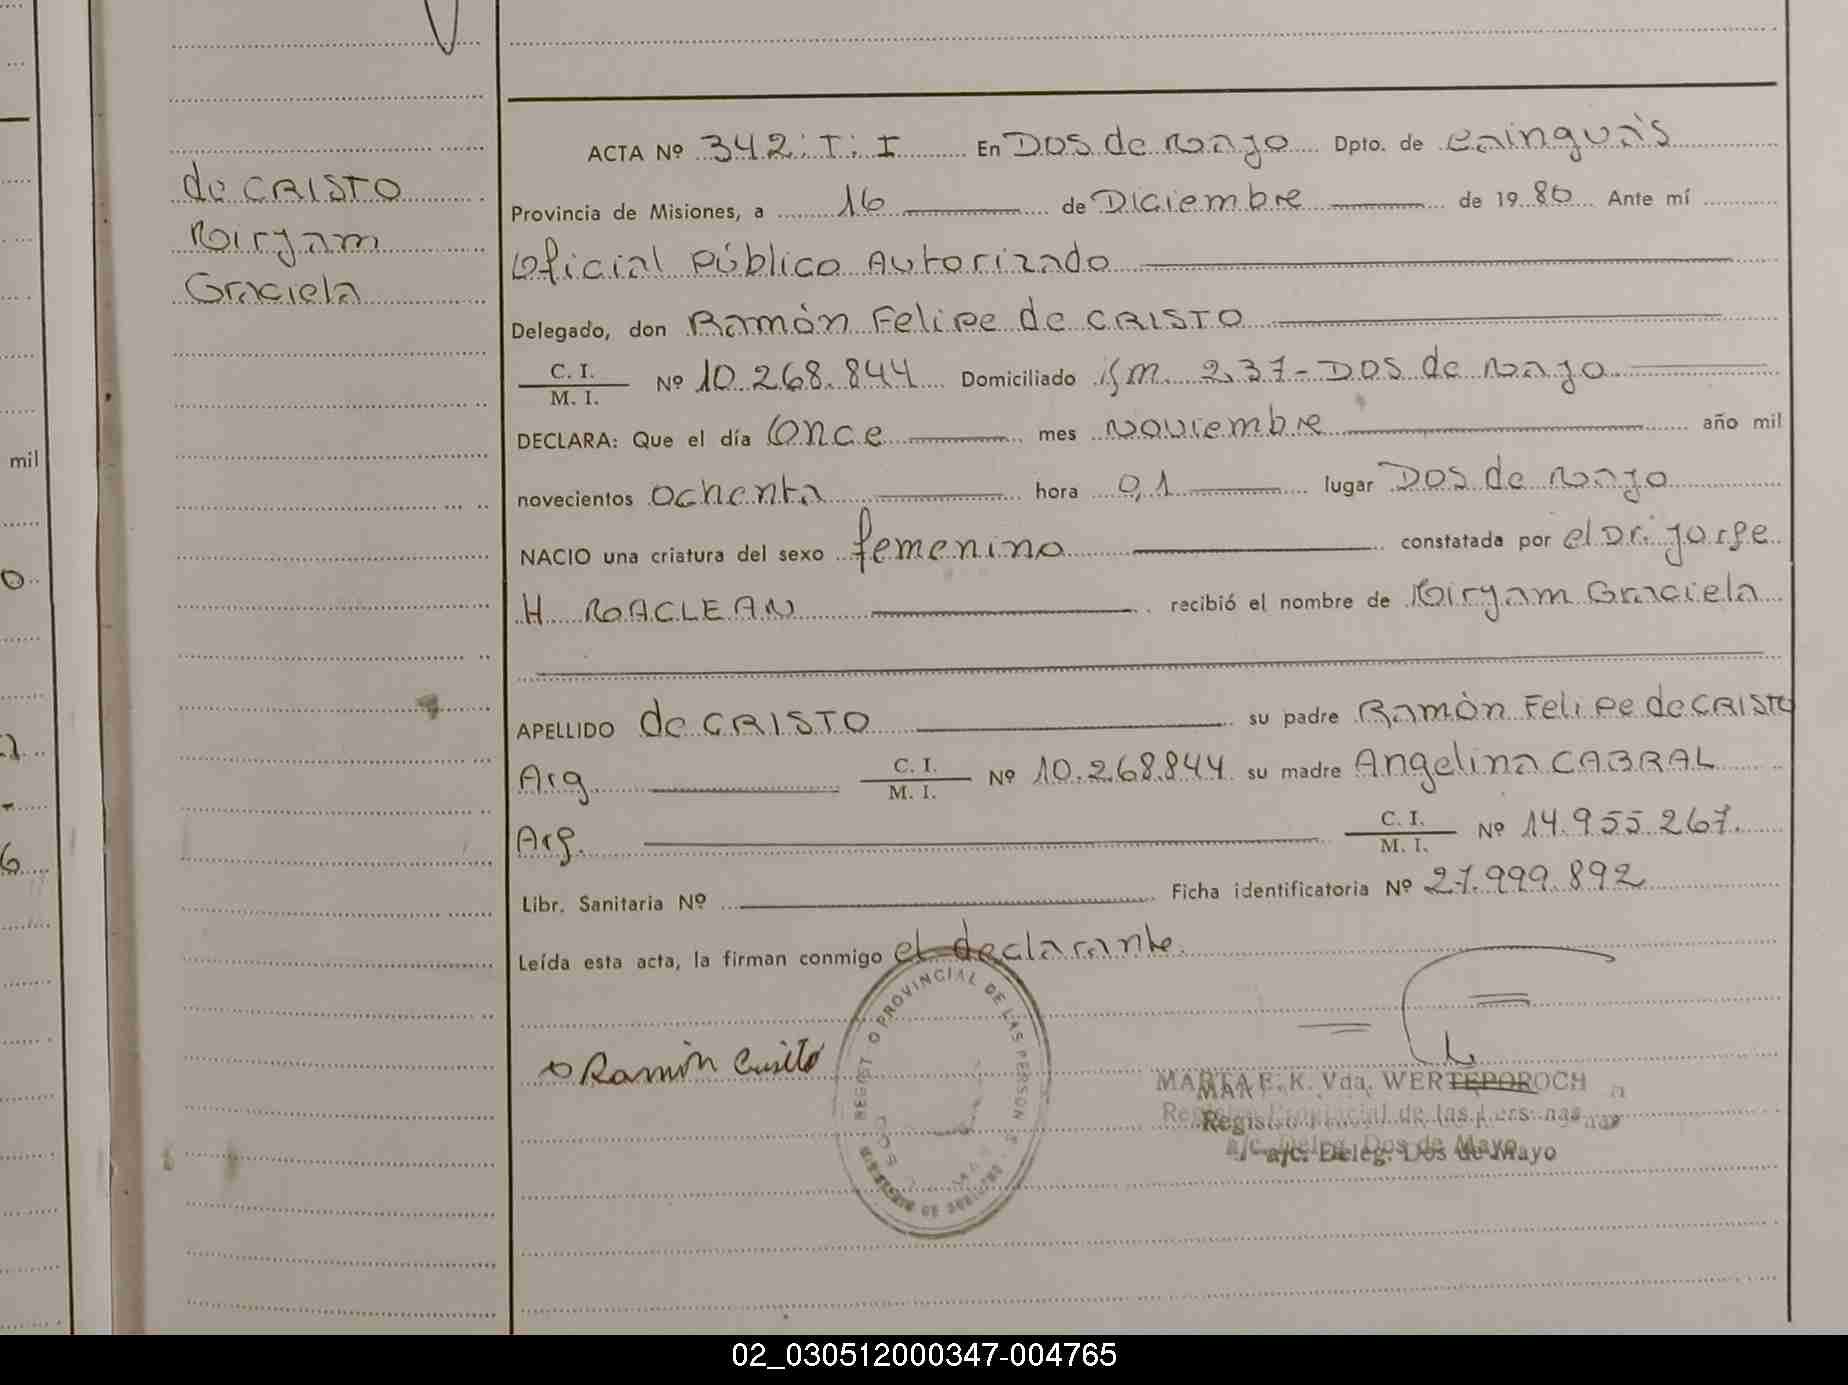 mil
de CRISTO
Miryam
Graciela
ACTA Nº 342: T: I En DOS de Mayo Dpto. de Cainguás
Provincia de Misiones, a 16 de Diciembre de 1980 Ante mí
Oficial Público Autorizado
Delegado, don Ramón Felipe de CRISTO
C. I.
M. I. Nº 10.268.844 Domiciliado Km. 237-DOS de Mayo
DECLARA: Que el día Once mes Noviembre año mil
novecientos ochenta hora 0,1 lugar DOS de Mayo
NACIO una criatura del sexo femenino constatada por el Dr. Jorge
H. MACLEAN recibió el nombre de Miryam Graciela
APELLIDO de CRISTO su padre Ramón Felipe de CRISTO
Arg C. I.
M. I. Nº 10.268.844 su madre Angelina CABRAL
Arg. C. I.
M. I. Nº 14.955.267.
Libr. Sanitaria Nº Ficha identificatoria Nº 27.999.892
Leída esta acta, la firman conmigo el declarante.
REGISTRO PROVINCIAL DE LAS PERSONAS
Ramón Cristo
MARTA E. K. Vda. WERTEPOROCH
Registro Provincial de las Personas
a/c. Deleg. Dos de Mayo
02_030512000347-004765